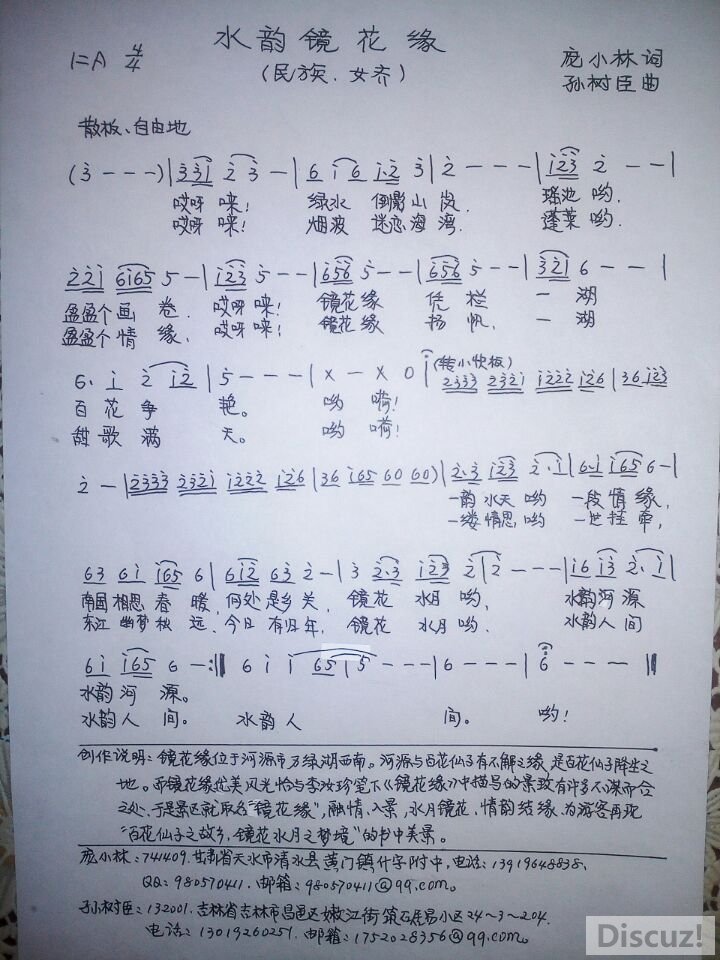 水韵镜花缘
(民族、女齐)
1=A 4/4
庞小林 词
孙树臣 曲
散板、自由地
(3 - - -) | 3 3 1 2 3 - | 6 1 6 1·2 3 | 2 - - - | 1 2 3 2 - - |
哎呀 唻! 绿水 倒影山岚 瑶池 哟.
哎呀 唻! 烟波 迷恋海湾. 蓬莱 哟.
2 2 1 6 1 6 5 5 - | 1 2 3 5 - - | 6 5 6 5 - - | 6 5 6 5 - - | 3 2 1 6 - - |
盈盈个画 卷. 哎呀唻! 镜花缘 凭栏 一 湖
盈盈个情 缘. 哎呀唻! 镜花缘 扬帆. 一 湖
6· 1 2 1 2 | 5 - - - | X - X 0 1 (转小快板) 2 3 3 3 2 3 2 1 1 2 2 2 1 2 6 | 3 6 1 2 3
百花争 艳。 哟 嗬!
甜歌满 天。 哟 嗬!
2 - | 2 3 3 3 2 3 2 1 1 2 2 2 1 2 6 | 3 6 1 6 5 6 0 6 0) | 2·3 1 2 3 2·1 | 6·1 1 6 5 6 - |
一韵 水天 哟 一段 情缘,
一缕 情思 哟 一世 挂牵,
6 3 6 1 1 6 5 6 | 6 1 2 6 3 2 - | 3 2·3 1 2 3 2 | 2 - - - | 1 6 1 3 2·1 |
南国 相思 春 暖, 何处 是乡 关, 镜花 水月 哟, 水韵河源
东江 幽梦 秋 远, 今日 有归 年, 镜花 水月 哟. 水韵人间
6 1 1 6 5 6 - :‖ 6 1 1 6 5 | 5 - - - | 6 - - - | 6 - - - ‖
水韵河 源。
水韵人 间。 水韵人 间。 哟!
创作说明: 镜花缘位于河源市万绿湖西南。河源与百花仙子有不解之缘,是百花仙子降生之
地。而镜花缘优美风光恰与李汝珍笔下《镜花缘》中描写的景致有许多不谋而合
之处.于是景区就取名“镜花缘”,融情、入景,水月镜花、情韵结缘、为游客再现
“百花仙子之故乡,镜花水月之梦境”的书中美景。
庞小林: 741409.甘肃省天水市清水县黄门镇什字附中,电话: 13919648838.
QQ: 980570411.邮箱: 980570411@qq.com。
孙树臣: 132001.吉林省吉林市昌邑区嫩江街 居易小区24～3～204.
电话: 13019260251.邮箱: 1752028356@qq.com。
Discuz!